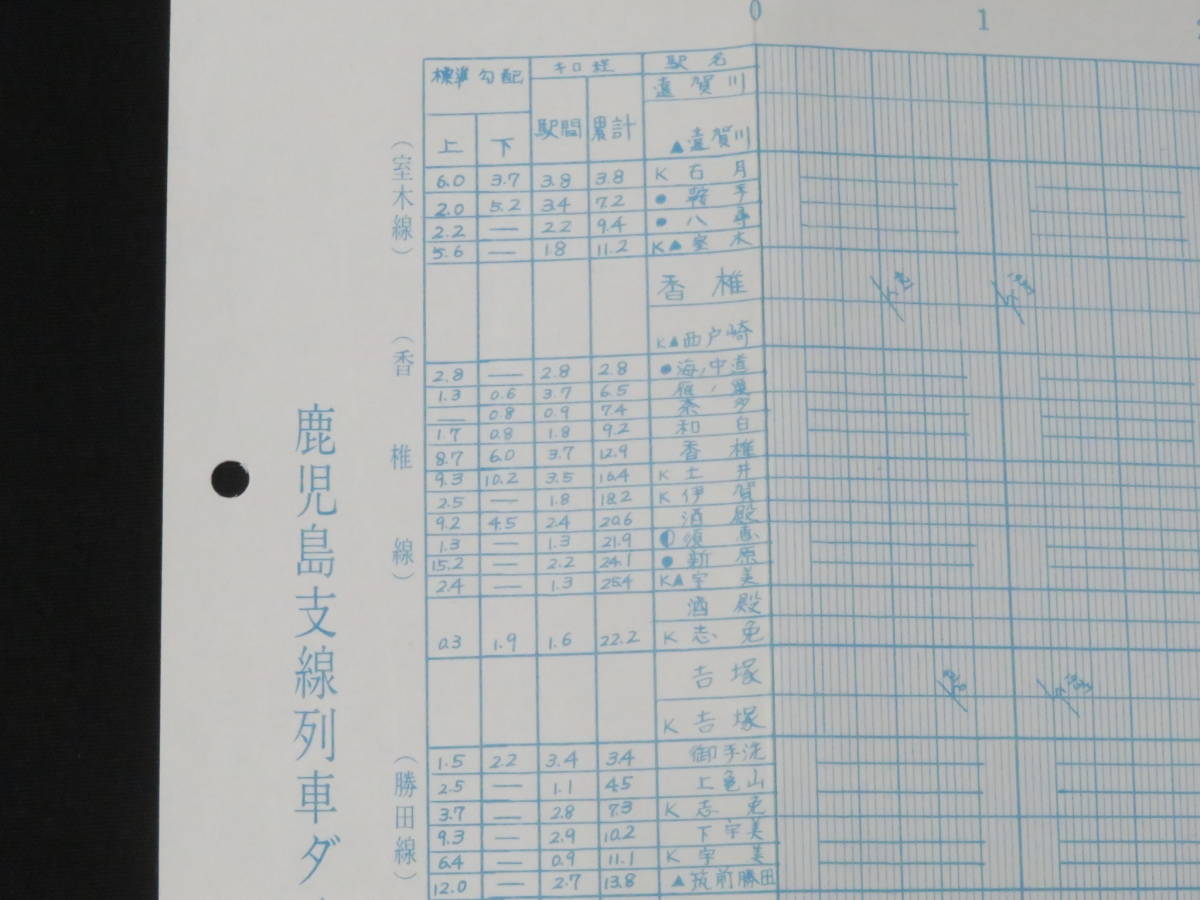 0 1
鹿児島支線列車ダ
標準勾配 キロ程 駅名
上 下 駅間 累計
遠賀川
(室木線)
▲遠賀川
6.0 3.7 3.8 3.8 K 古月
2.0 5.2 3.4 7.2 ● 鞍手
2.2 — 2.2 9.4 ● 八尋
5.6 — 1.8 11.2 K▲室木
香椎
(香椎線)
K▲西戸崎
2.8 — 2.8 2.8 ●海ノ中道
1.3 0.6 3.7 6.5 雁ノ巣
— 0.8 0.9 7.4 奈多
1.7 0.8 1.8 9.2 和白
8.7 6.0 3.7 12.9 香椎
9.3 10.2 3.5 16.4 K 土井
2.5 — 1.8 18.2 K 伊賀
9.2 4.5 2.4 20.6 酒殿
1.3 — 1.3 21.9 ◐須恵
15.2 — 2.2 24.1 ● 新原
2.4 — 1.3 25.4 K▲宇美
酒殿
0.3 1.9 1.6 22.2 K 志免
吉塚
(勝田線)
K 吉塚
1.5 2.2 3.4 3.4 御手洗
2.5 — 1.1 4.5 上亀山
3.7 — 2.8 7.3 K 志免
9.3 — 2.9 10.2 下宇美
6.4 — 0.9 11.1 K 宇美
12.0 — 2.7 13.8 ▲筑前勝田